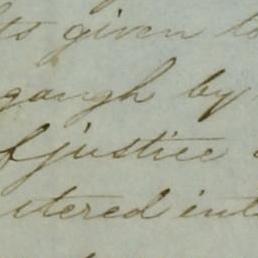 ts given to
gaugh by
of justice
itered int